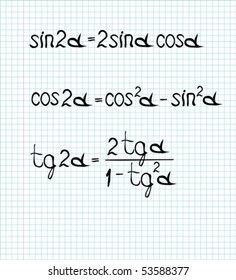 sin2α=2sinα cosα
cos2α=cos²α-sin²α
tg2α=2tgα/1-tg²α
shutterstock.com · 53588377